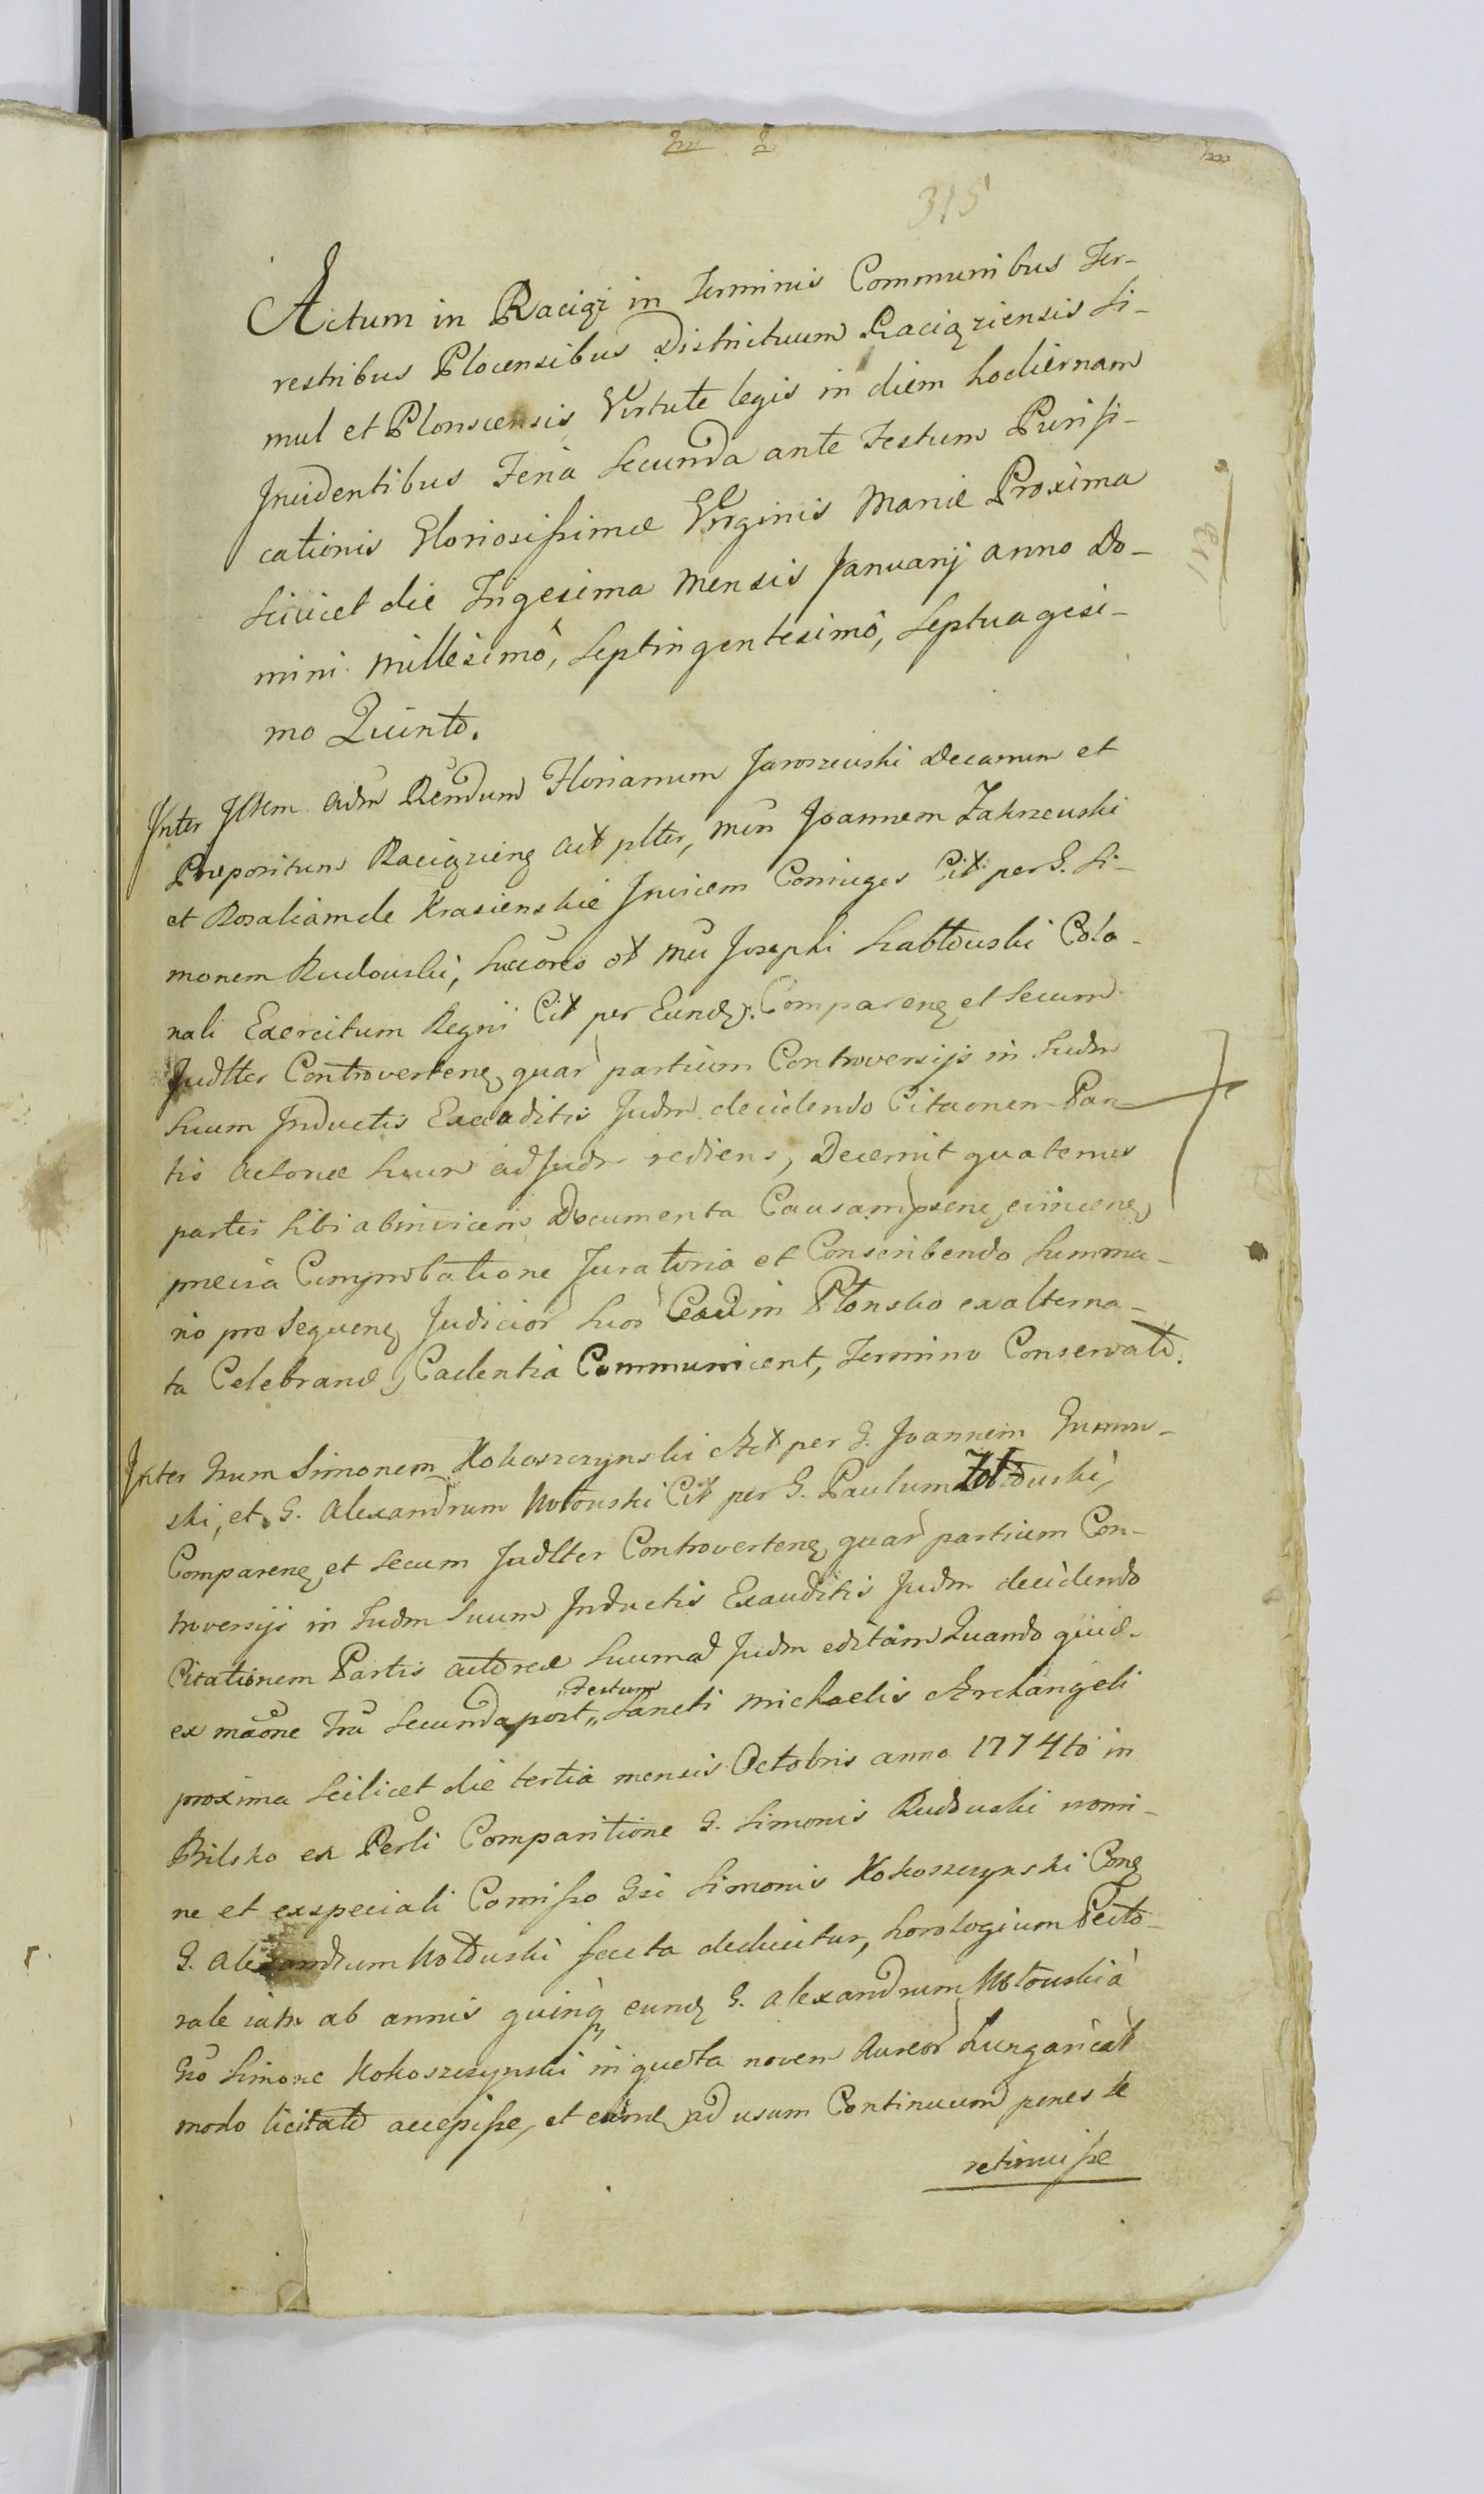 315
Actum in Raciąż in Terminis Communibus Ter-
restribus Plocensibus Districtuum Raciąziensis Si-
mul et Plonscensis Virtute legis in diem hodiernam
Incidentibus Feria Secunda ante Festum Purifi-
cationis Gloriosissimæ Virginis Mariæ Proxima
Scilicet die Trigesima Mensis Januarij anno Do-
mini Millesimô, Septingentesimô, Septuagesi-
mo Quinto.
Inter Illrem adm Rendum Florianum Jaroszewski Decanum et
Præpositum Raciązienę act plter, Mcũ Joannem Zakrzewski
et Rosaliam de Krasienskie Invicem Coniuges Cit per G. Si-
monem Rudowski, Succores et Mci Josephi Colo-
nali Exercitum Regni Cit per Eundę. Comparenę et Secum
Judlter Controvertenę quar partium Controversijs in Judm
Suum Inductis Exauditis Judm decidendo Citaonem Par-
tis Actoreæ Suum ad Judm rediens, Decernit quatenus
partes Sibi abinvicem Documenta Causam psenę evincenę
præcisa Comprobatione Juratoria et Conscribendo Summa-
rio pro Sequenę Judicior Suor Cauu in Płonsko exalterna-
ta Celebrand Cadentia Communicent, Termino Conservato.
Inter Grum Simonem Kokoszczynski Act per G. Joannem Gumow-
ski, et G. Alexandrum Mołowski Cit per G. Paulum Zołtowski,
Comparenę et Secum Judlter Controvertenę quar partium Con-
troversijs in Judm Suum Inductis Exauditis Judm decidendo
Citationem Partis actoreæ Suum ad Judm editam Quando quid.
ex maone Fria Secunda post „Festum„ Sancti Michaelis Archangeli
proxima Scilicet die tertia mensis Octobris anno 1774to in
Bilsko ex Perli Comparitione G. Simonis Rudowski nomi-
ne et ex speciali Comisso Gsi Simonis Kokoszczynski Conę
G. Alexandrum Mołowski facta deducitur, horologium Pecto-
rale iam ab annis quinq eundę G. Alexandrum Mołowski a
Gso Simone Kokoszczynski in quota novem Aureor Hungaricał
modo licitato accepisse, et eumdę ad usum Continuum penes se
retinuisse